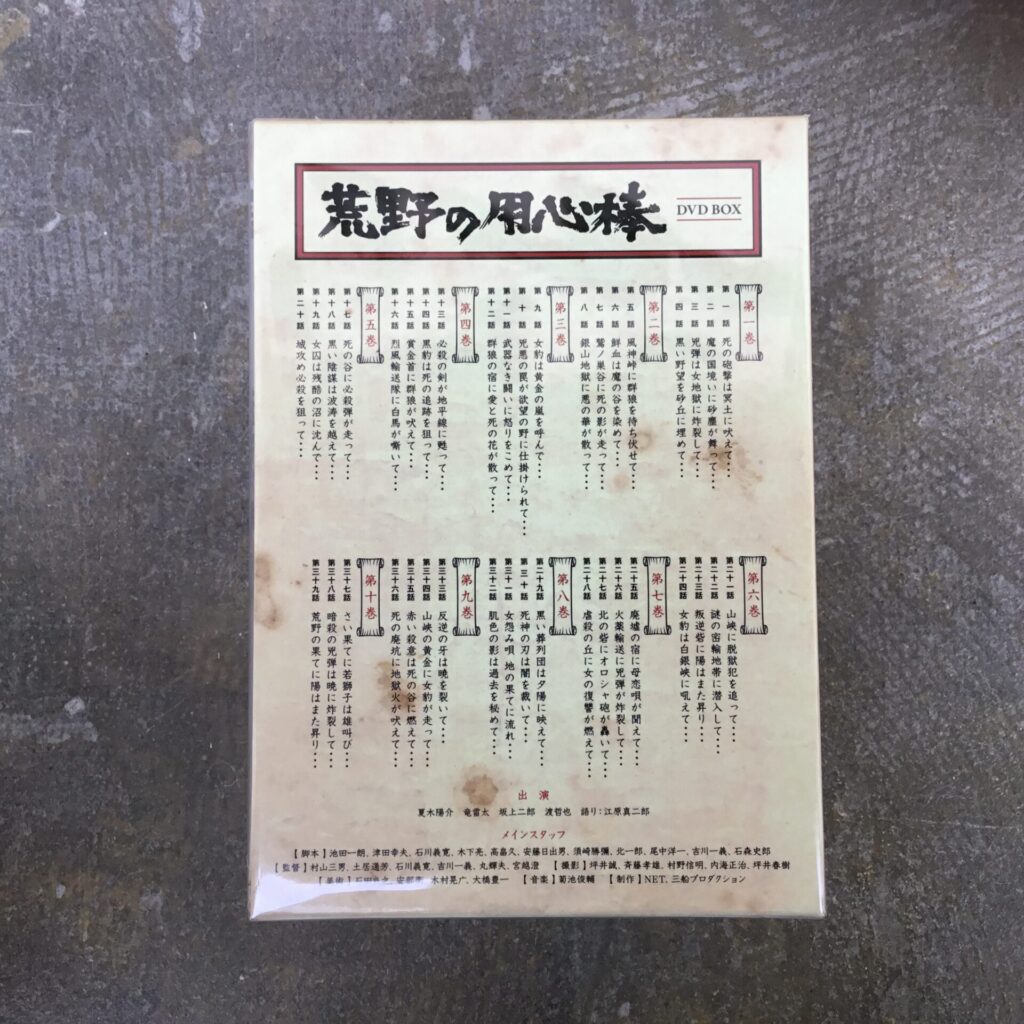 荒野の用心棒
DVD BOX
第一巻
第一話 死の砲撃は冥土に吠えて・・・
第二話 魔の国境いに砂塵が舞って・・・
第三話 兇弾は女地獄に炸裂して・・・
第四話 黒い野望を砂丘に埋めて・・・
第二巻
第五話 風神峠に群狼を待ち伏せて・・・
第六話 鮮血は魔の谷を染めて・・・
第七話 鷲ノ巣谷に死の影が走って・・・
第八話 銀山地獄に悪の華が散って・・・
第三巻
第九話 女豹は黄金の嵐を呼んで・・・
第十話 死悪の罠が欲望の野に仕掛けられて・・・
第十一話 武器なき闘いに怒りをこめて・・・
第十二話 群狼の宿に愛と死の花が散って・・・
第四巻
第十三話 必殺の剣が地平線に甦って・・・
第十四話 黒豹は死の追跡を狙って・・・
第十五話 黄金首に群狼が吠えて・・・
第十六話 烈風輸送隊に白馬が嘶いて・・・
第五巻
第十七話 死の谷に必殺弾が走って・・・
第十八話 黒い陰謀は波涛を越えて・・・
第十九話 女囚は残酷の沼に沈んで・・・
第二十話 城攻め必殺を狙って・・・
第六巻
第二十一話 山峡に脱獄犯を追って・・・
第二十二話 謎の密輸地帯に潜入して・・・
第二十三話 叛逆砦に陽はまた昇り・・・
第二十四話 女豹は白銀峡に吼えて・・・
第七巻
第二十五話 廃墟の宿に母恋唄が聞えて・・・
第二十六話 火薬輸送に兇弾が炸裂して・・・
第二十七話 北の砦にオロシャ砲が轟いて・・・
第二十八話 虐殺の丘に女の復讐が燃えて・・・
第八巻
第二十九話 黒い葬列団は夕陽に映えて・・・
第三十話 死神の刃は闇を裁いて・・・
第三十一話 女怨み唄 地の果てに流れ・・・
第三十二話 肌色の影は過去を秘めて・・・
第九巻
第三十三話 反逆の牙は暁を裂いて・・・
第三十四話 山峡の黄金に女豹が走って・・・
第三十五話 赤い殺意は死の谷に燃えて・・・
第三十六話 死の廃坑に地獄火が吠えて・・・
第十巻
第三十七話 さい果てに若獅子は雄叫び・・・
第三十八話 暗殺の兇弾は暁に炸裂して・・・
第三十九話 荒野の果てに陽はまた昇り・・・
出 演
夏木陽介 竜雷太 坂上二郎 渡哲也 語り:江原真二郎
メインスタッフ
【脚本】池田一朗、津田幸夫、石川義寛、木下亮、高畠久、安藤日出男、須崎勝彌、北一郎、尾中洋一、吉川一義、石森史郎
【監督】村山三男、土居通芳、石川義寛、吉川一義、丸輝夫、宮越澄 【撮影】坪井誠、斉藤孝雄、村野信明、内海正治、坪井春樹
木村晃广、大橋豊一 【音楽】菊池俊輔 【制作】NET、三船プロダクション